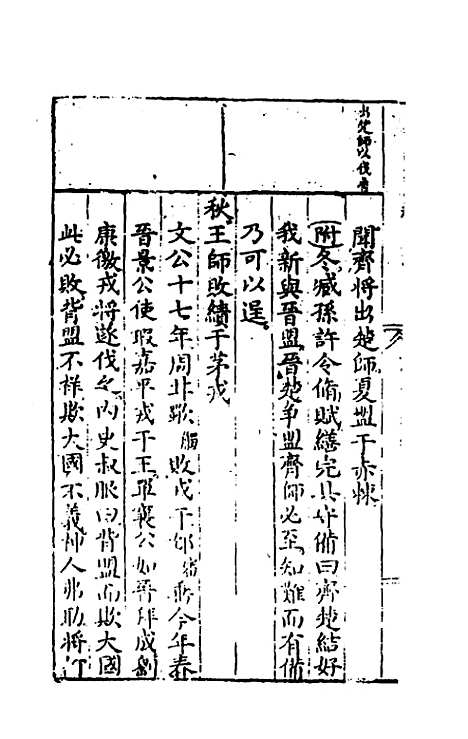 出楚師以伐晉
聞齊將出楚師夏盟于赤棘
附冬臧孫許令脩賦繕完具守備曰齊楚結好
我新與晉盟晉楚争盟齊師必至知難而有備
乃可以逞
秋王師敗績于茅戎
文公十七年周甘歜觸敗戎于邥垂今年春
晉景公使瑕嘉平戎于王單襄公如晉拜成劉
康徼戎將遂伐之内史叔服曰背盟而欺大國
此必敗背盟不祥欺大國不義神人弗助將何